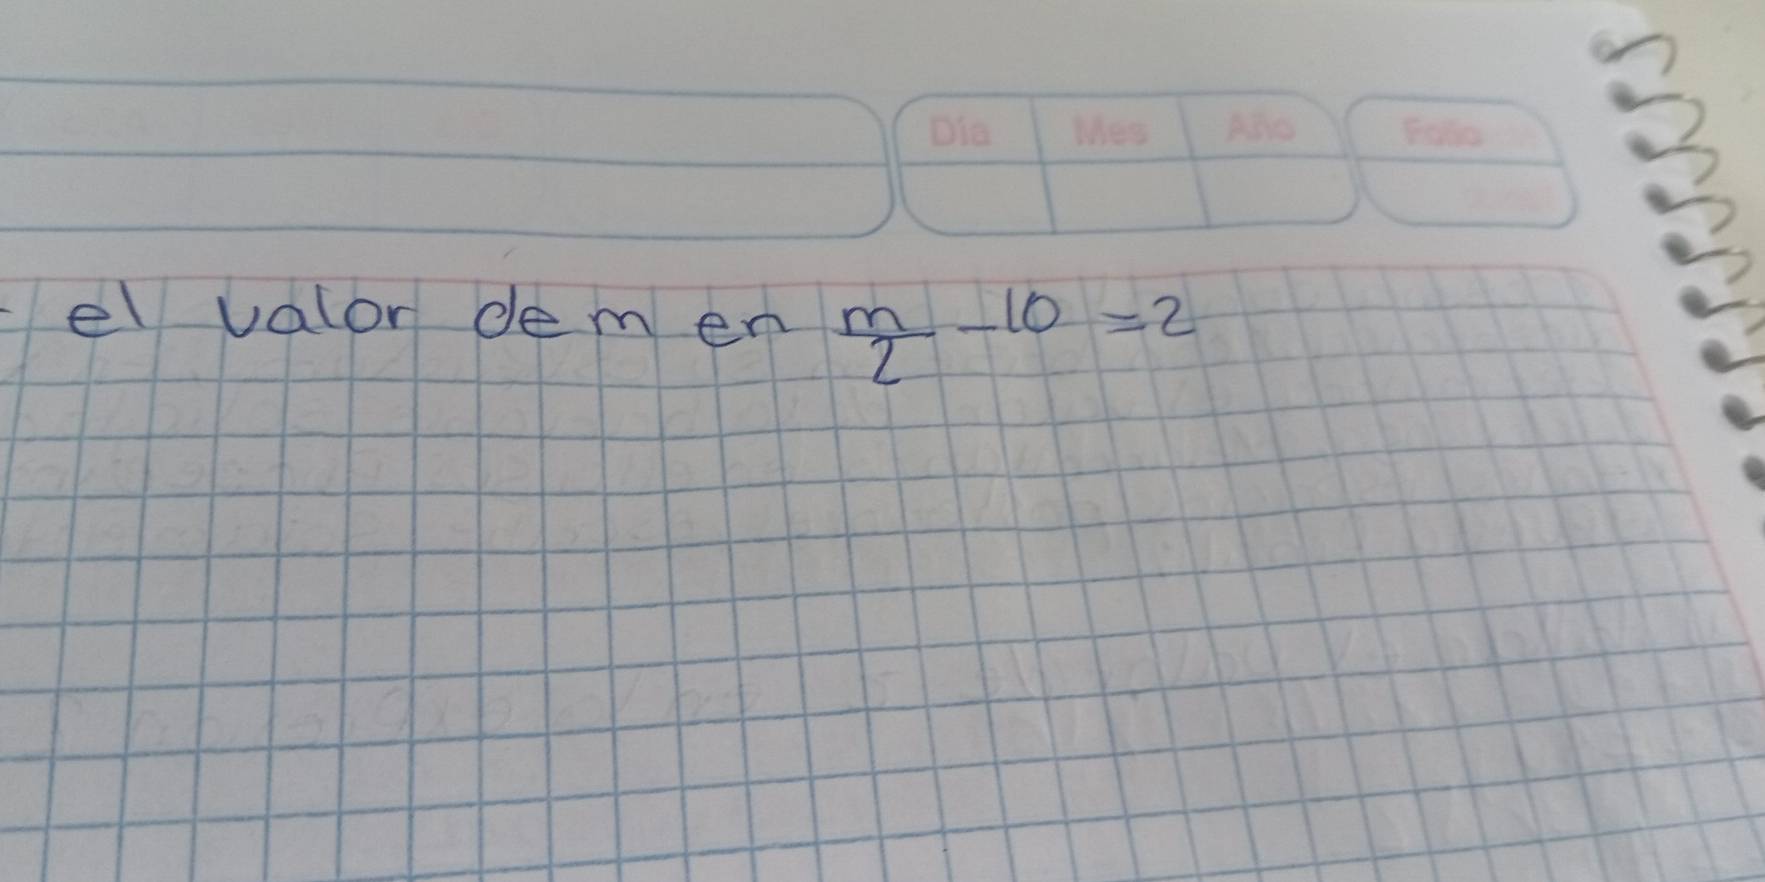 Día Mes Año Folio
el valor de m en m/2 - 10 = 2